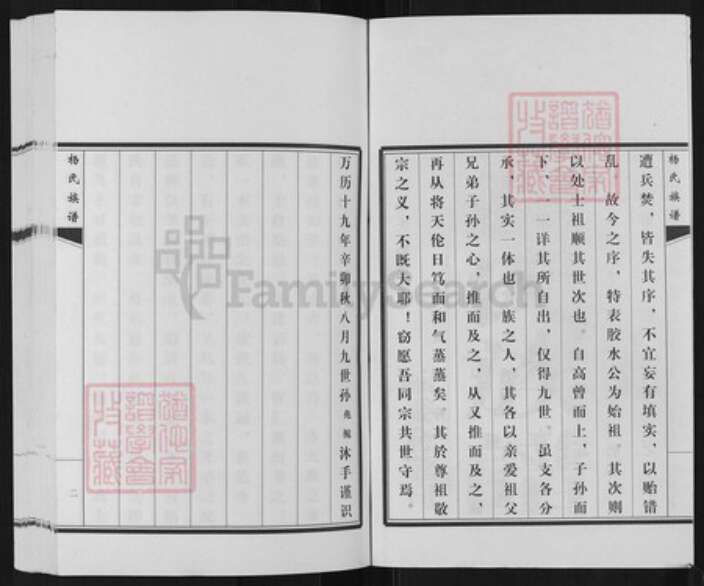 杨氏族谱
遭兵焚，皆失其序，不宜妄有填实，以贻错
乱，故今之序，特表胶水公为始祖，其次则
以处士祖顺其世次也。自高曾而上，子孙而
下，一一详其所自出，仅得九世。虽支各分
承，其实一体也　族之人，其各以亲爱祖父
兄弟子孙之心，推而及之，从又推而及之，
再从将天伦日笃而和气蒸蒸矣。其於尊祖敬
宗之义，不既大耶！窃愿吾同宗共世守焉。
万历十九年辛卯秋八月九世孙 沐手谨识
杨氏族谱
二
FamilySearch